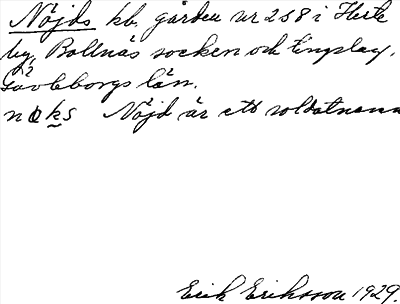 Nöjds kb. gården nr 258 i Herte
by, Bollnäs socken och tingslag,
Gävleborgs län.
nøks Nöjd är ett soldatnamn
Erik Eriksson 1929.